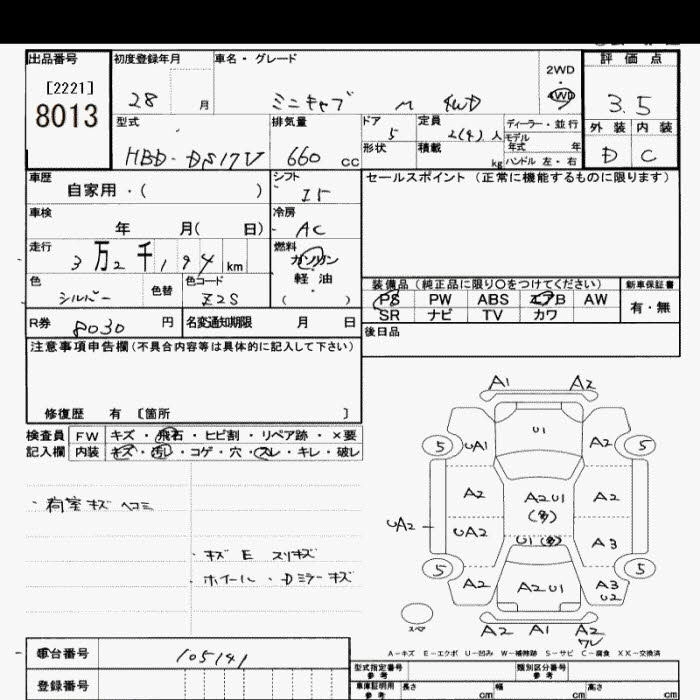 出品番号 初度登録年月 車名・グレード 評価点
[2221]
8013
28 月 ミニキャブ M 4WD
2WD
・
4WD
3.5
型式 排気量 ドア 定員 ディーラー・並行 外装 内装
HBD-DS17V 660 cc 5 2(4)人 モデル年式 年 D C
形状 積載 kg ハンドル 左・右
車歴 シフト セールスポイント (正常に機能するものに限ります)
自家用・( ) I5
車検 冷房
年 月( 日) AC
走行 燃料
3万2千194 km ガソリン・軽油
( )
色 色替 色コード
シルバー Z2S
装備品 (純正品に限り〇をつけてください) 新車保証書
PS PW ABS エアB AW 有・無
SR ナビ TV カワ
R券 8030 円 名変通知期限 月 日 後日品
注意事項申告欄 (不具合内容等は具体的に記入して下さい)
修復歴 有 〔箇所 〕
検査員 FW キズ・飛石・ヒビ割・リペア跡・×要
記入欄 内装 キズ・汚レ・コゲ・穴・スレ・キレ・破レ
・荷室キズ ヘコミ
・キズ E スリキズ
・ホイール・Dミラーキズ
A1 A2
U1
5 UA1 A2 5
A2 A2U1 (多) A2
UA2 UA2 U1 (多) A3
5 A2 A2U1 A3 U2 5
スペア A2 A1 A2 7V
A-キズ E-エクボ U-凹み W-補修跡 S-サビ C-腐食 X X-交換済
車台番号 105141
登録番号
型式指定番号 参考 類別区分番号 参考
車庫証明用 参考 長さ cm 幅 cm 高さ cm